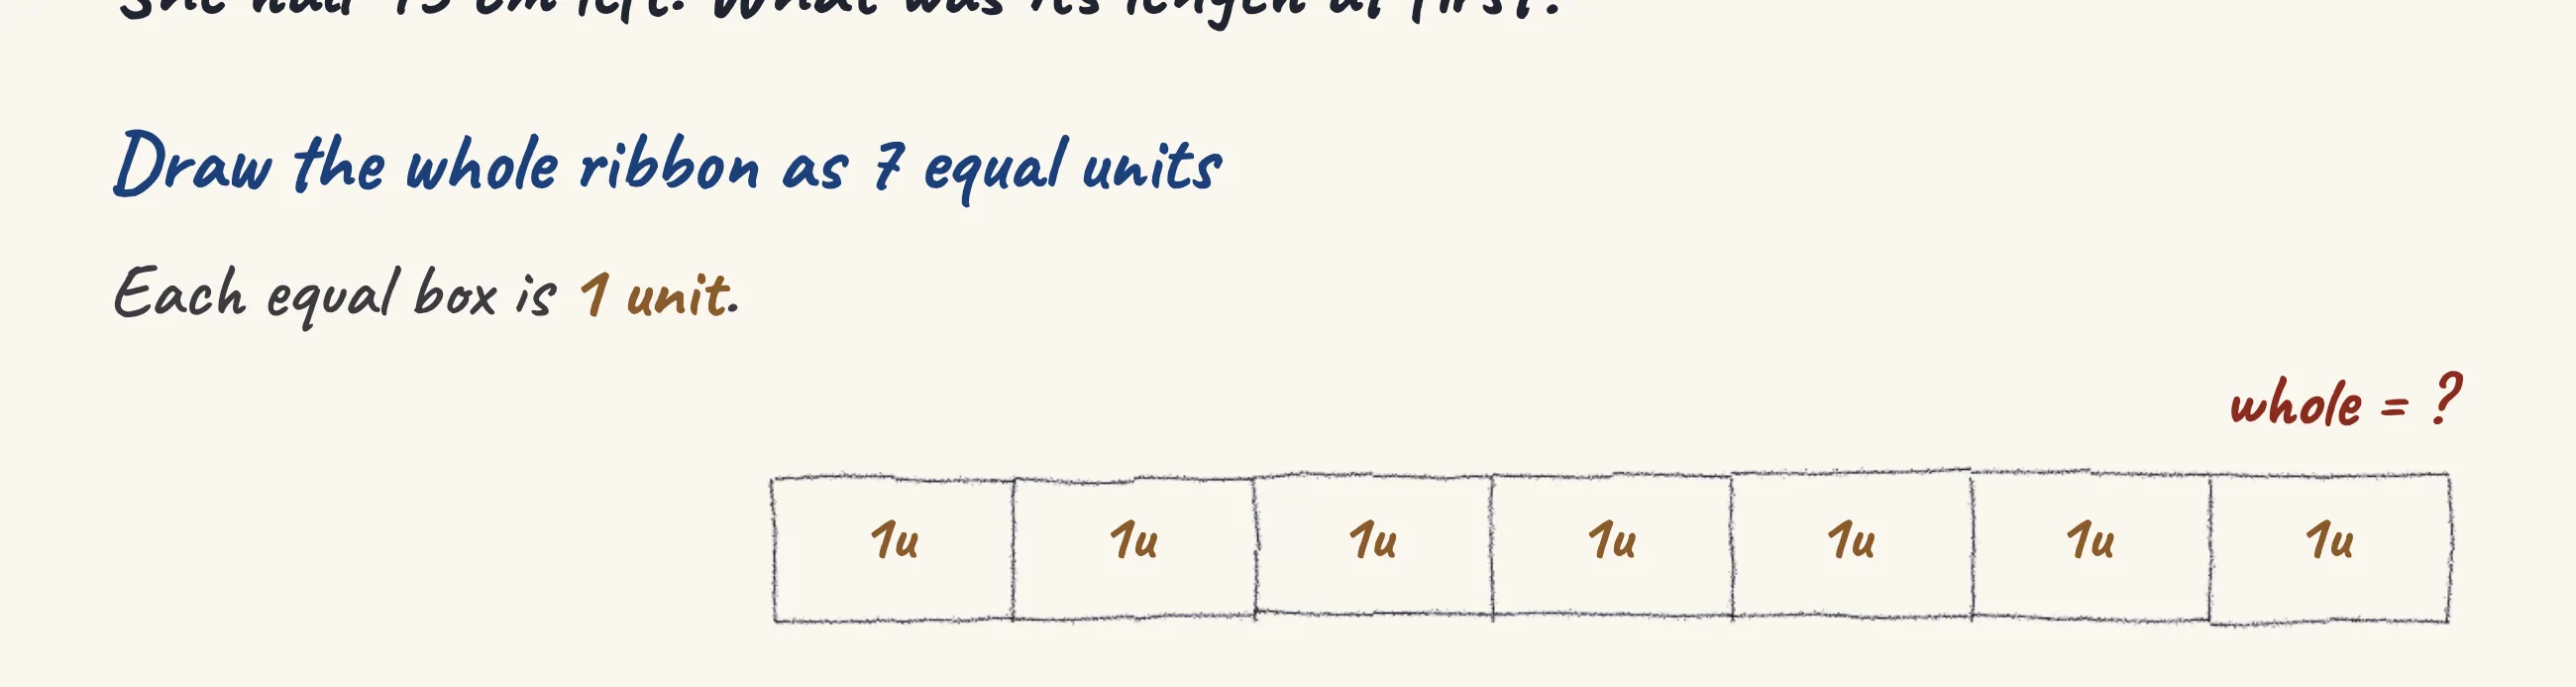 She had 45 cm left. What was its length at first?
Draw the whole ribbon as 7 equal units
Each equal box is 1 unit.
whole = ?
1u 1u 1u 1u 1u 1u 1u